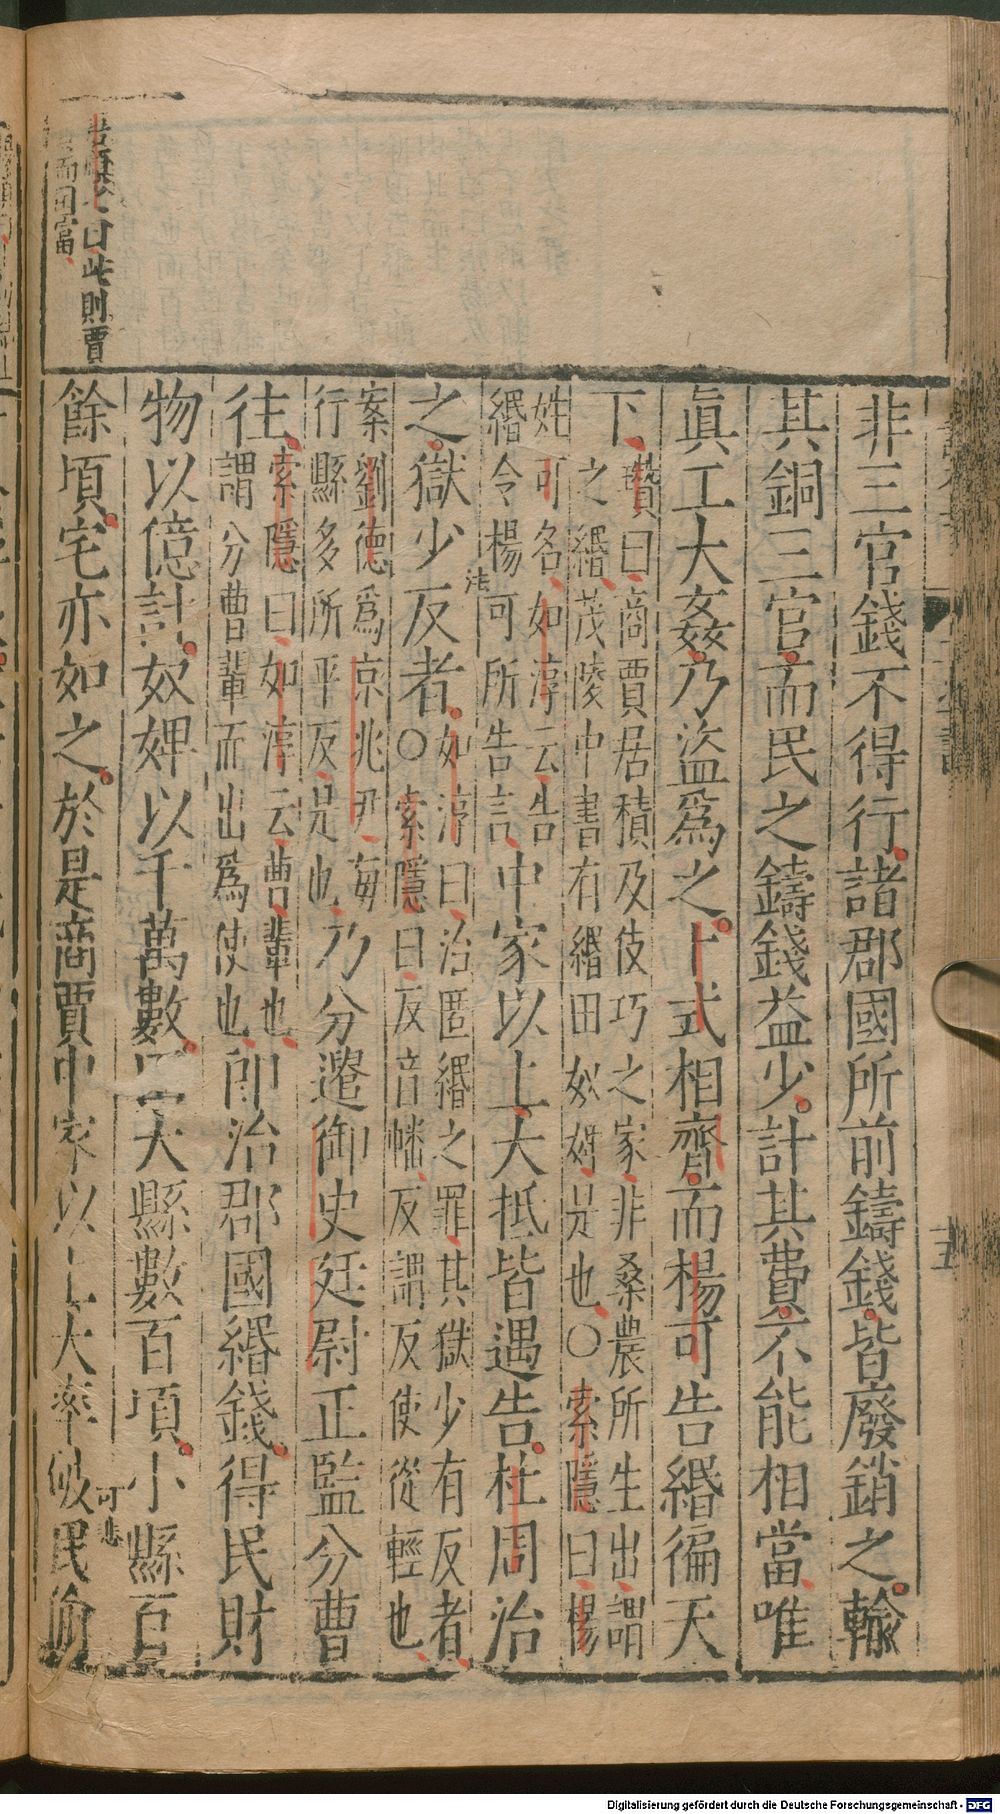 非三官錢不得行諸郡國所前鑄錢皆廢銷之輸
其銅三官而民之鑄錢益少計其費不能相當唯
眞工大姦乃盜爲之卜式相齊而楊可告緡徧天
下瓚曰商賈居積及伎巧之家非桑農所生出謂
之緡茂陵中書有緡田奴婢是也○索隱曰楊
姓可名如淳云告
緡令楊可所告言中家以上大抵皆遇告杜周治
之獄少反者如淳曰治匿緡之罪其獄少有反者
○索隱曰反音幡反謂反使從輕也
法
案劉德爲京兆尹每
行縣多所平反是也乃分遣御史廷尉正監分曹
往索隱曰如淳云曹輩也
謂分曹輩而出爲使也即治郡國緡錢得民財
物以億計奴婢以千萬數田大縣數百頃小縣百
餘頃宅亦如之於是商賈中家以上大率破民偷
可悲
曰此則賈
而田富
十五
Digitalisierung gefördert durch die Deutsche Forschungsgemeinschaft - DFG